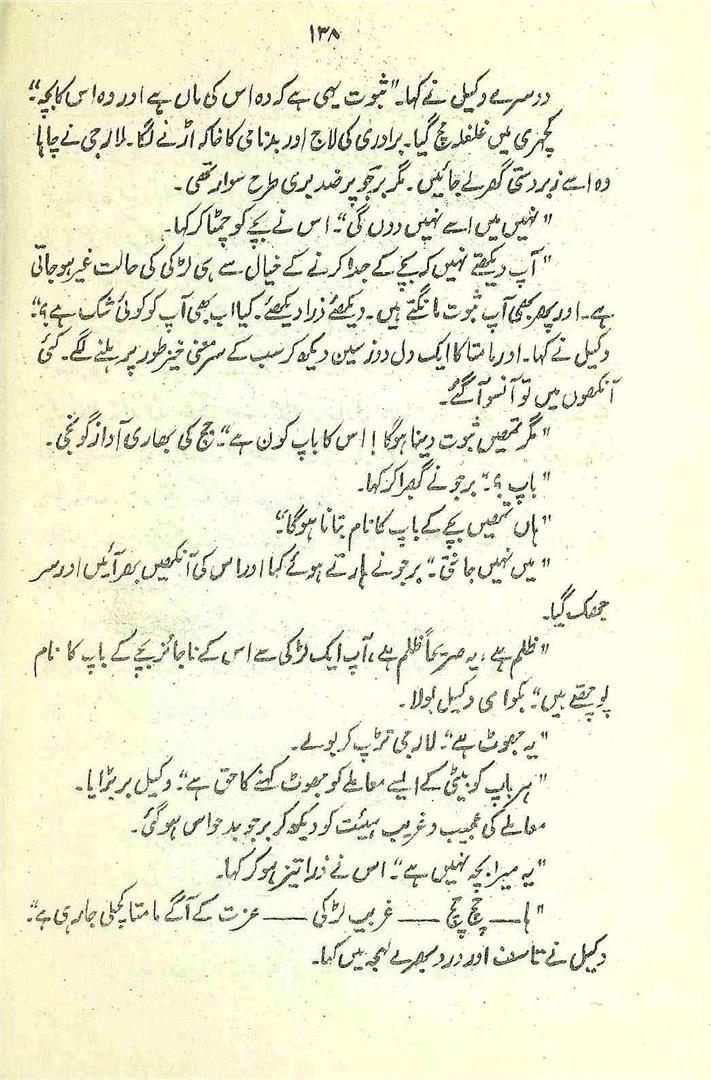 ۱۳۸
دوسرے وکیل نے کہا۔ "ثبوت یہی ہے کہ وہ اس کی ماں ہے اور وہ اس کا بچہ۔"
کچہری میں غلغلہ مچ گیا۔ برادری کی لاج اور بدنامی کا خاکہ اڑنے لگا۔ لالہ جی نے چاہا
وہ اسے زبردستی گھر لے جائیں۔ مگر برجو پر ضد بری طرح سوار تھی۔
"نہیں میں اسے نہیں دوں گی"۔ اس نے بچے کو چمٹا کر کہا۔
"آپ دیکھتے نہیں کہ بچے کے جدا کرنے کے خیال سے ہی لڑکی کی حالت غیر ہو جاتی
ہے۔ اور پھر بھی آپ ثبوت مانگتے ہیں۔ دیکھئے ذرا دیکھئے۔ کیا اب بھی آپ کو کوئی شک ہے؟"۔
وکیل نے کہا۔ اور مامتا کا ایک دل دوز سین دیکھ کر سب کے سر معنی خیز طور پر ہلنے لگے۔ کئی
آنکھوں میں تو آنسو آ گئے۔
"مگر تمھیں ثبوت دینا ہوگا! اس کا باپ کون ہے"۔ جج کی بھاری آواز گونجی۔
"باپ؟"۔ برجو نے گھبرا کر کہا۔
"ہاں تمھیں بچے کے باپ کا نام بتانا ہوگا"۔
"میں نہیں جانتی"۔ برجو نے ہارتے ہوئے کہا اور اس کی آنکھیں بھر آئیں اور سر
جھک گیا۔
"ظلم ہے، یہ صریحاً ظلم ہے، آپ ایک لڑکی سے اس کے ناجائز بچے کے باپ کا نام
پوچھتے ہیں"۔ بکواسی وکیل بولا۔
"یہ جھوٹ ہے"۔ لالہ جی تڑپ کر بولے۔
"ہر باپ کو بیٹی کے ایسے معاملے کو جھوٹ کہنے کا حق ہے"۔ وکیل بربڑایا۔
معاملے کی عجیب و غریب ہیئت کو دیکھ کر برجو بدحواس ہو گئی۔
"یہ میرا بچہ نہیں ہے"۔ اس نے ذرا تیز ہو کر کہا۔
"ہا — چچ چچ — غریب لڑکی — عزت کے آگے مامتا کچلی جا رہی ہے"۔
وکیل نے تاسف اور درد بھرے لہجہ میں کہا۔